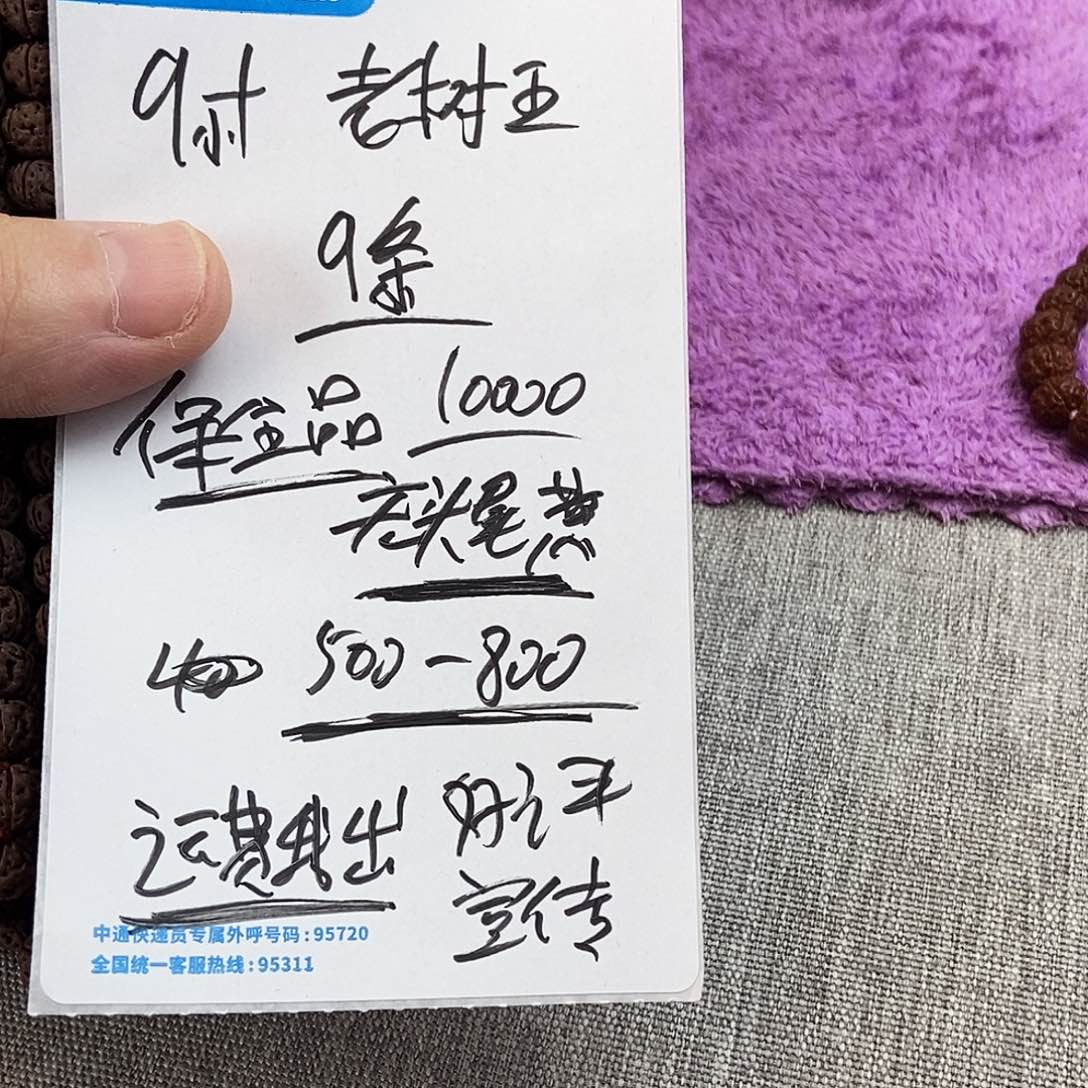 9瓣 老树王
9条
保全品 10000
无头尾黄
400 500-800
运费我出 好评
宣传
中通快递员专属外呼号码:95720
全国统一客服热线:95311